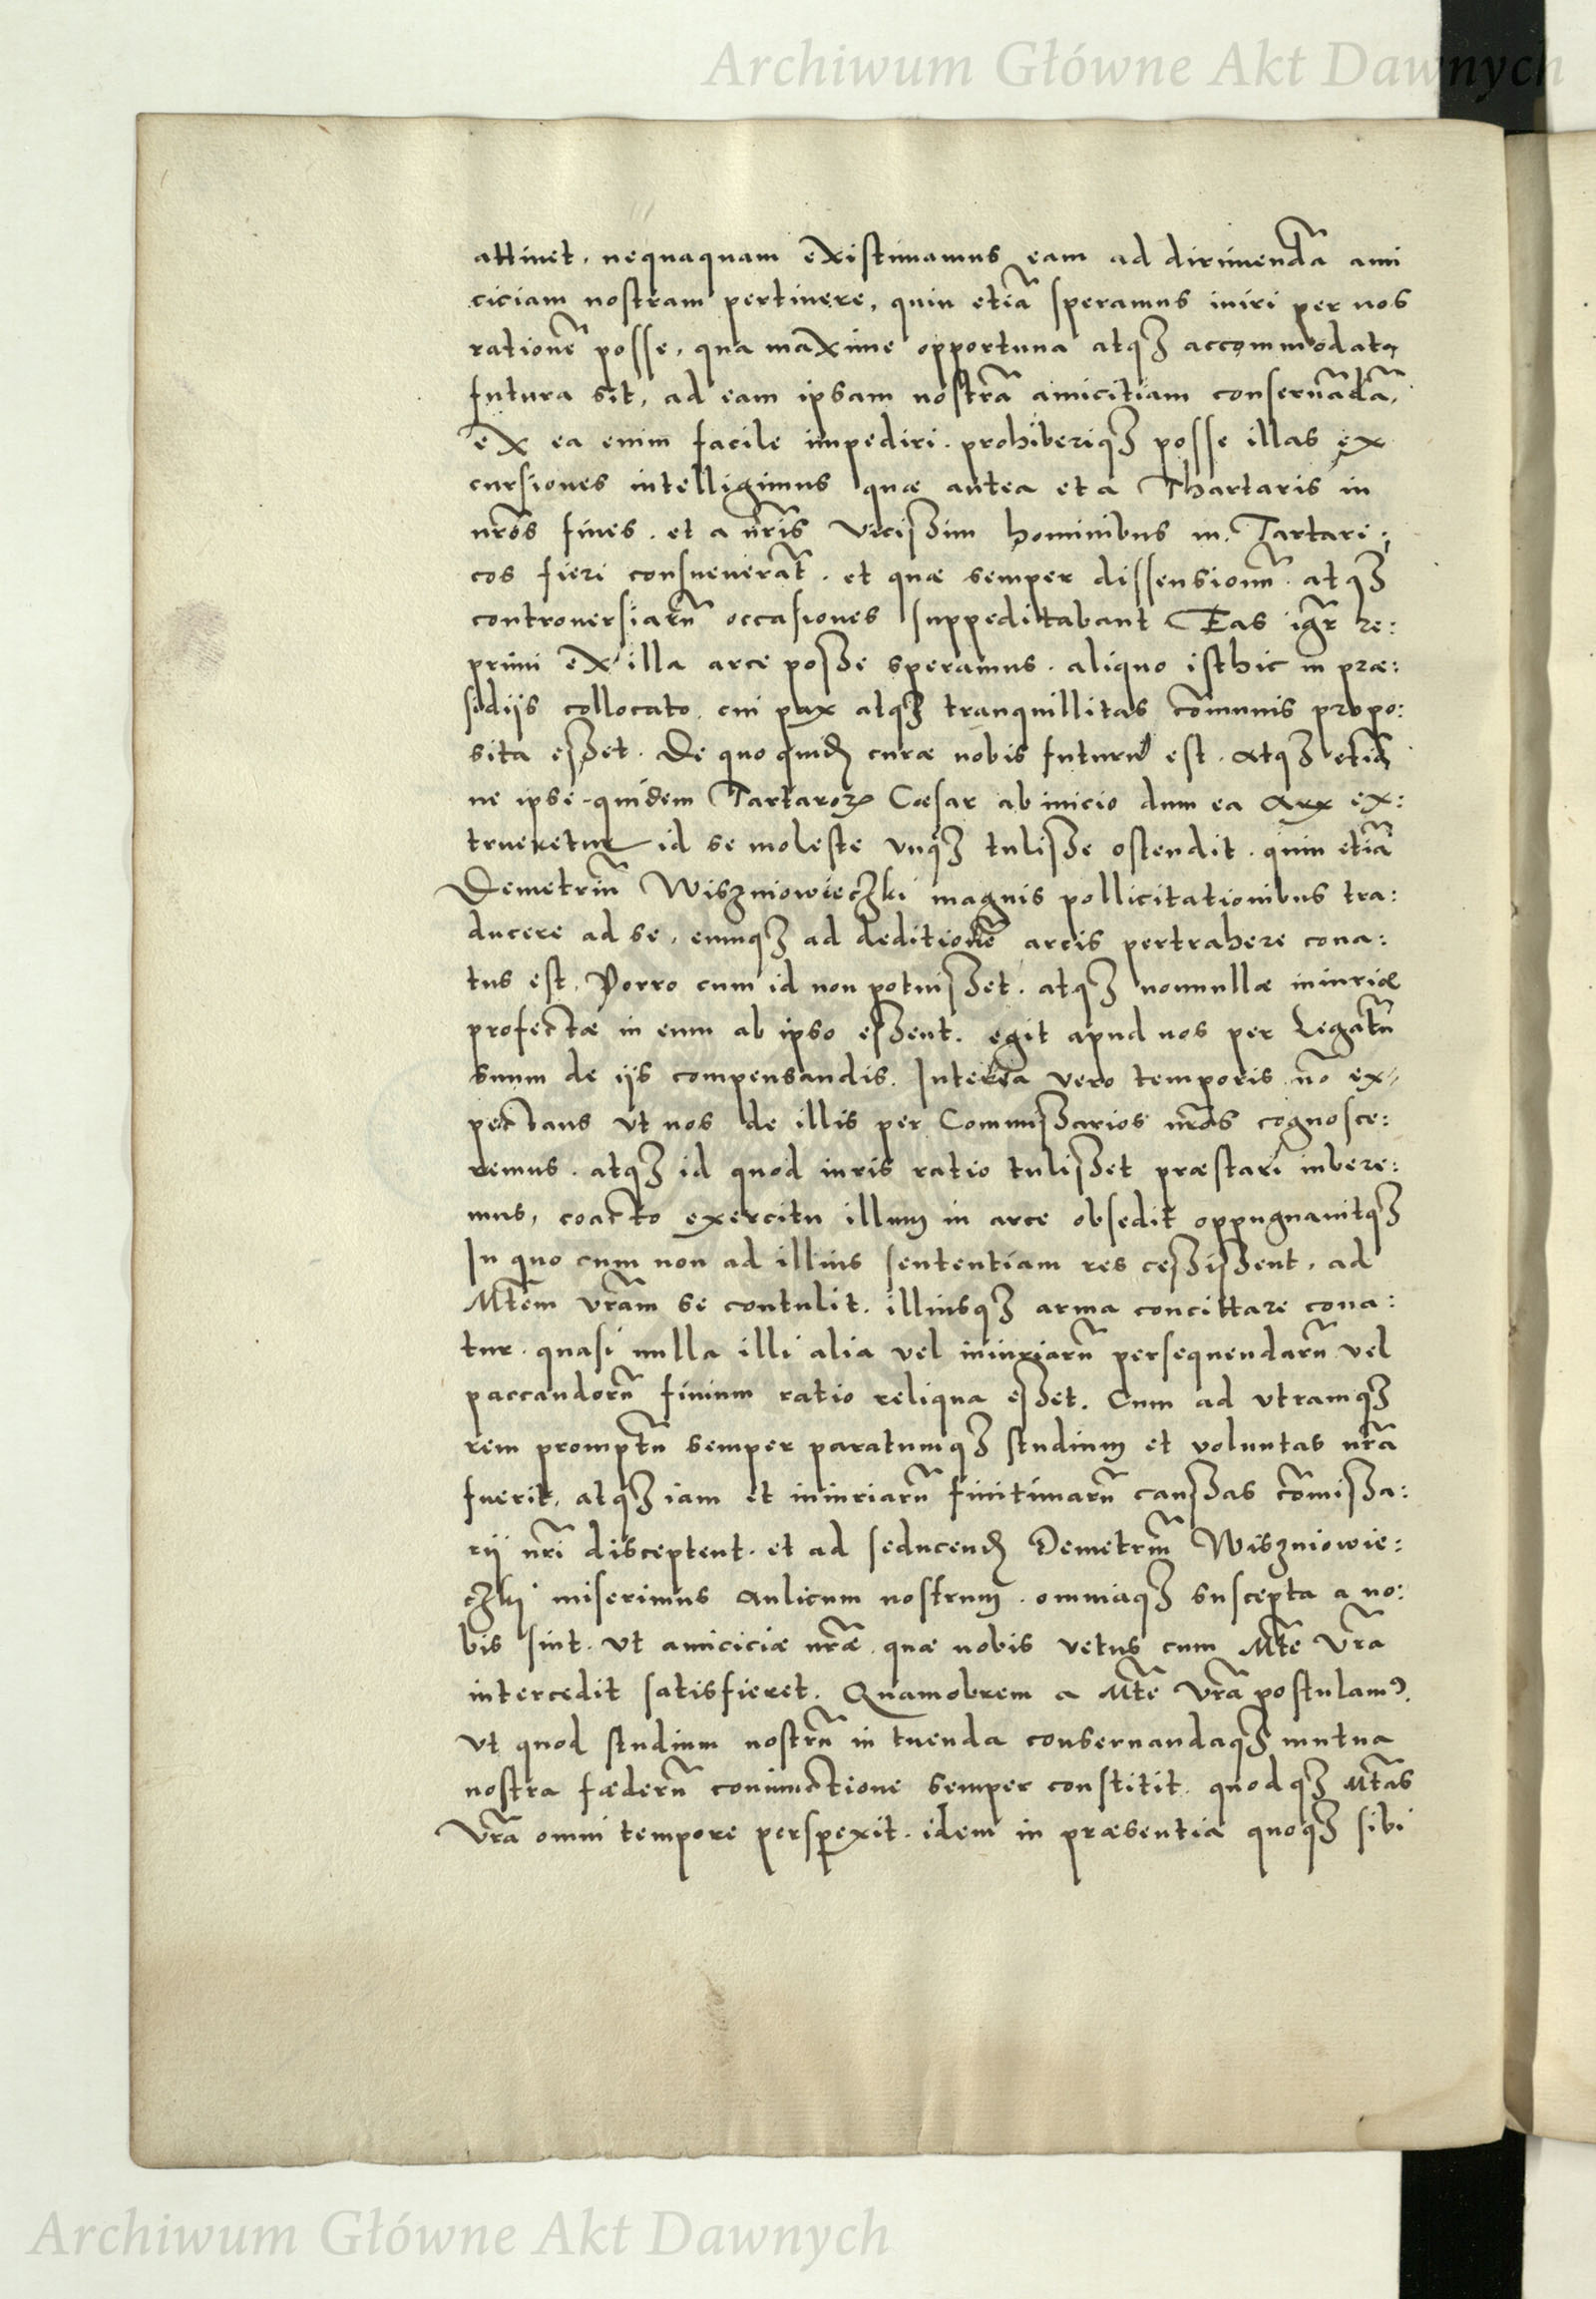 Archiwum Główne Akt Dawnych
attinet, nequaquam existimamus eam ad dirimendā ami
ciciam nostram pertinere, quin etiā speramus iniri per nos
rationē posse, qua maxime opportuna atqꝫ accommodata
futura sit, ad eam ipsam nostrā amicitiam conseruādā,
ex ea enim facile impediri. prohiberiqꝫ posse illas ex
cursiones intelligimus quæ antea et a Thartaris in
nr̄os fines. et a nr̄is vicissim hominibus in Tartari:
cos fieri consueuerāt. et quæ semper dissensionū. atqꝫ
controuersiarū occasiones suppeditabant Eas igr̄ re:
primi ex illa arce posse speramus. aliquo isthic in præ:
sidijs collocato, cui pax atqꝫ tranquillitas com̄unis propo:
sita esset. De quo quidē curæ nobis futurū est. atqꝫ etiā
ne ipse quidem Tartaroꝝ Cæsar ab inicio dum ea Arx ex:
trueretur id se moleste vnqꝫ tulisse ostendit. quin etiā
Demetriū Wiszniowieczki magnis pollicitationibus tra:
ducere ad se, eumqꝫ ad deditionē arcis pertrahere cona:
tus est, Porro cum id non potuisset. atqꝫ nonnullæ iniuriæ
profectæ in eum ab ipso essent. egit apud nos per Legatū
suum de ijs compensandis. Interea vero temporis nō ex-
pectans vt nos de illis per Commissarios nr̄os cognosce:
remus. atqꝫ id quod iuris ratio tulisset præstari iubere:
mus, coacto exercitu illum in arce obsedit oppugnauitqꝫ
In quo cum non ad illius sententiam res cessissent, ad
Mtēm vrām se contulit. illiusqꝫ arma concittare cona:
tur. quasi nulla illi alia vel iniuriarū persequendarū vel
paccandorū finium ratio reliqua esset. Cum ad vtramqꝫ
rem promptū semper paratumqꝫ studium et voluntas nrā
fuerit, atqꝫ iam et iniuriarū finitimarū caussas com̄issa:
rij nrī disceptent. et ad seducendū Demetriū Wiszniowie:
czki miserimus Aulicum nostrum. omniaqꝫ suscepta a no:
bis sint. vt amiciciæ nrǣ. quæ nobis vetus cum Mtē Vrā
intercedit satisfieret. Quamobrem a Mtē Vrā postulamꝰ.
vt quod studium nostrū in tuenda conseruandaqꝫ mutua
nostra fæderū coniunctione semper constitit. quodqꝫ Mtās
Vrā omni tempore perspexit. idem in præsentia quoqꝫ sibi
Archiwum Główne Akt Dawnych